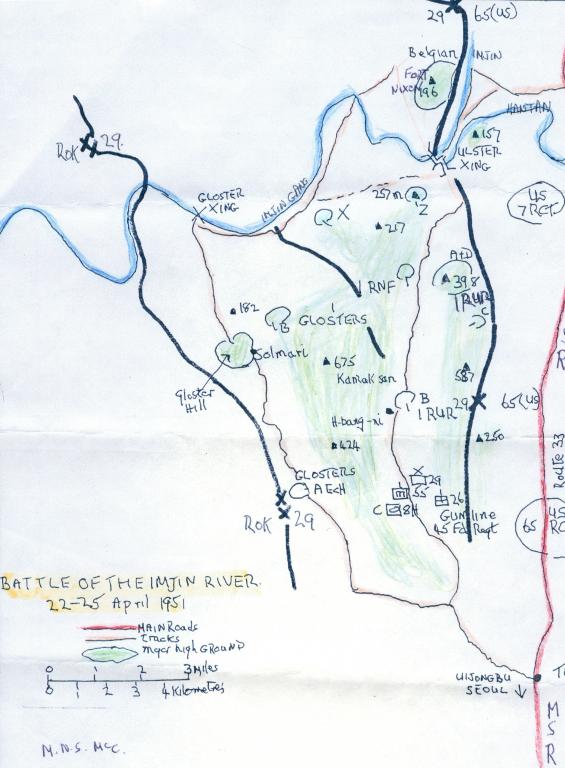 29 65(US)
Belgian
IMJIN
FORT
NIXON
196
HANTAN
157
ROK 29.
ULSTER
XING
GLOSTER
XING
IMJIN GANG
257m
Z
X
217
US
7 RCT
A+D
398
1 RNF
1 RUR
C
182
B GLOSTERS
Solmari
675
Kamak san
587
Gloster
Hill
B
1 RUR
29 65(US)
H-bang-ni
424
250
Route 33
GLOSTERS
A Ech
29
55
26
C 8H
GUN LINE
45 Fd Regt
65
ROK 29
BATTLE OF THE IMJIN RIVER.
22-25 April 1951
MAIN Roads
tracks
major high GROUND
0 1 2 3 Miles
0 1 2 3 4 Kilometres
UIJONGBU
SEOUL ↓
M
S
R
M.N.S. McC.